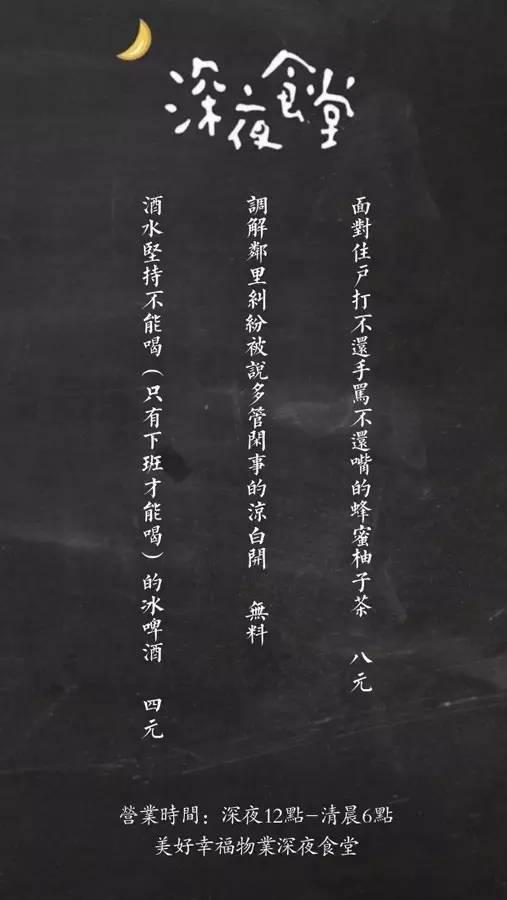 深夜食堂
面對住戶打不還手罵不還嘴的蜂蜜柚子茶 八元
調解鄰里糾紛被說多管閑事的涼白開 無料
酒水堅持不能喝（只有下班才能喝）的冰啤酒 四元
營業時間：深夜12點-清晨6點
美好幸福物業深夜食堂